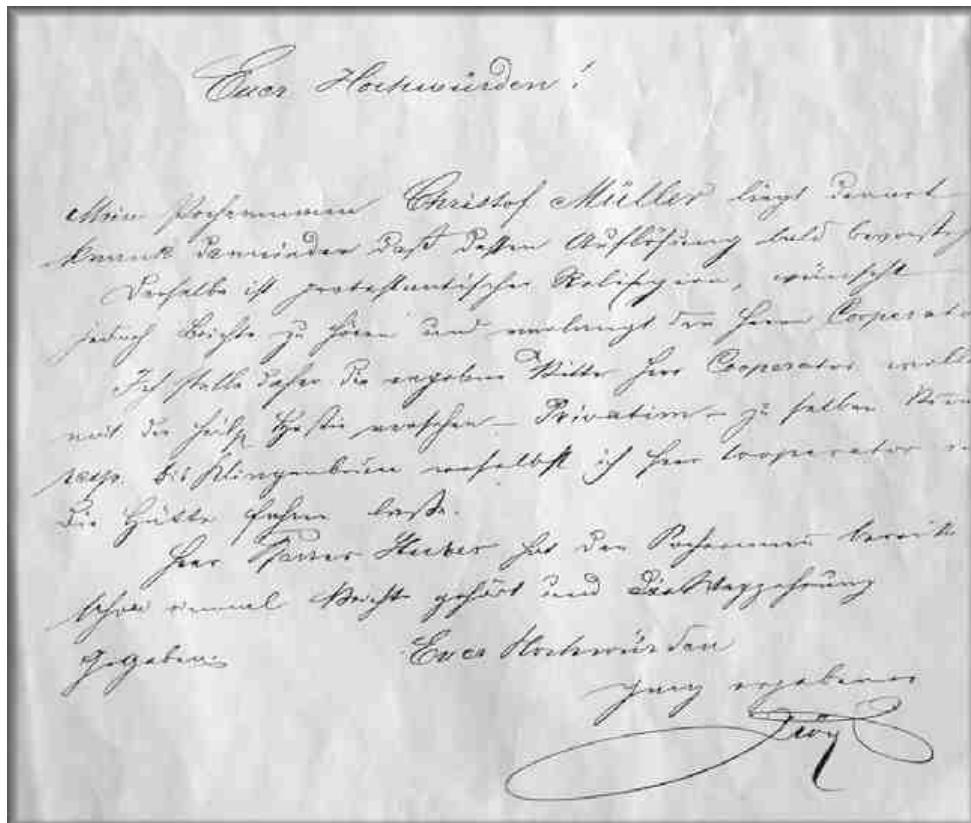 Euer Hochwürden!
Mein Pochermann Christof Müller liegt derart
krank darnieder daß dessen Auflösung bald bevorsteh
Derselbe ist protestantischer Religion, wünscht
jedoch Beichte zu hören und verlangt den Herrn Cooperato
Ich stelle daher die ergebene Bitte Herr Cooperator
mit der heilg. Hostie versehen – Privatim – zu selben
resp. bis Klingenbrun woselbst ich Herr Cooperator
die Hütte fahren laße.
Herr Pfarrer Huber hat den Pochermann bereits
schon einmal Beicht gehört und die Wegzehrung
gegeben.
Euer Hochwürden
ganz ergebener